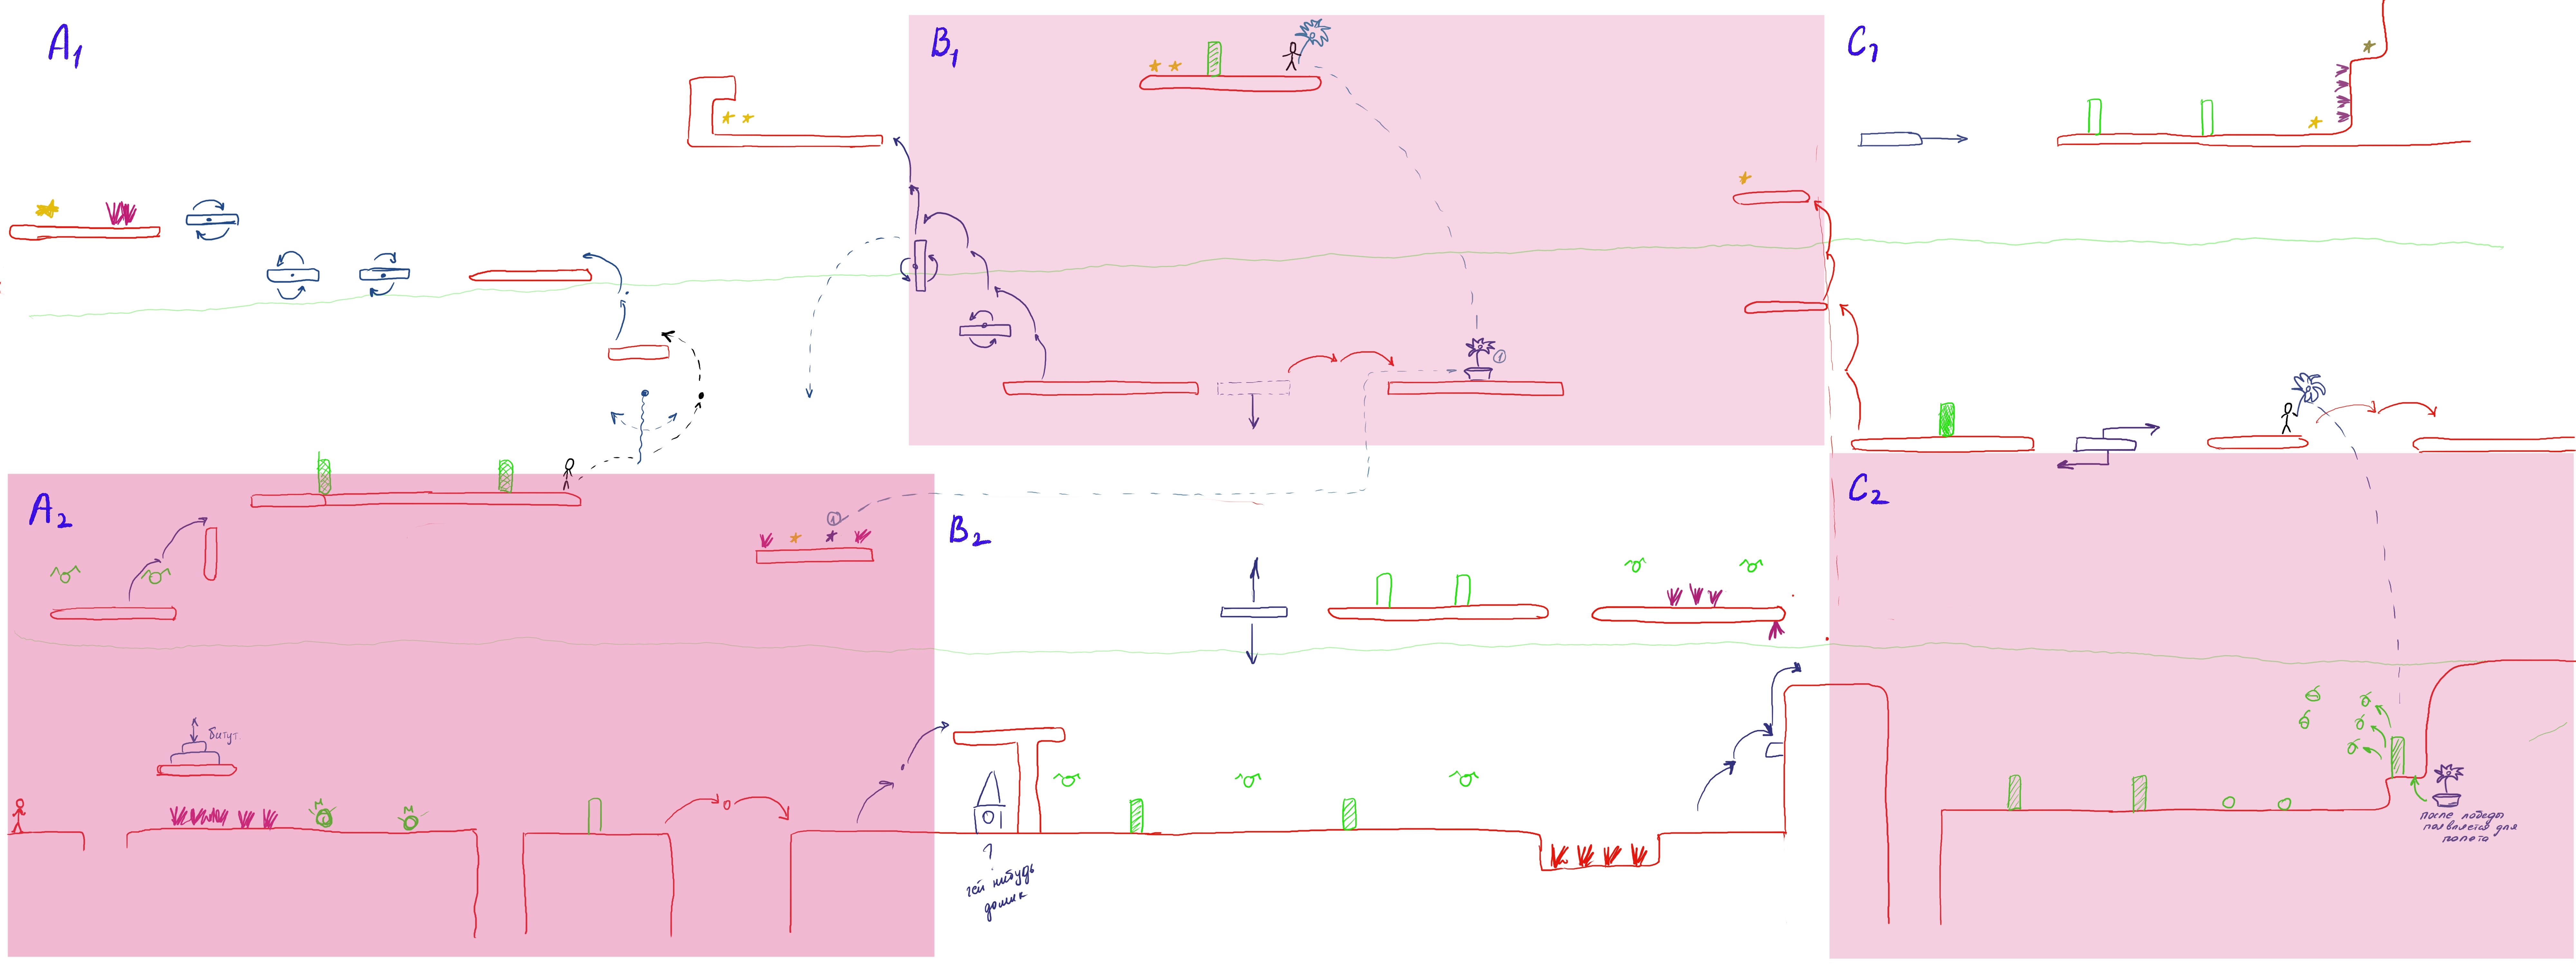 A1
B1
C1
1
A2
1
B2
C2
битут
?
чей нибудь
домик
после победы
появляется для
полета